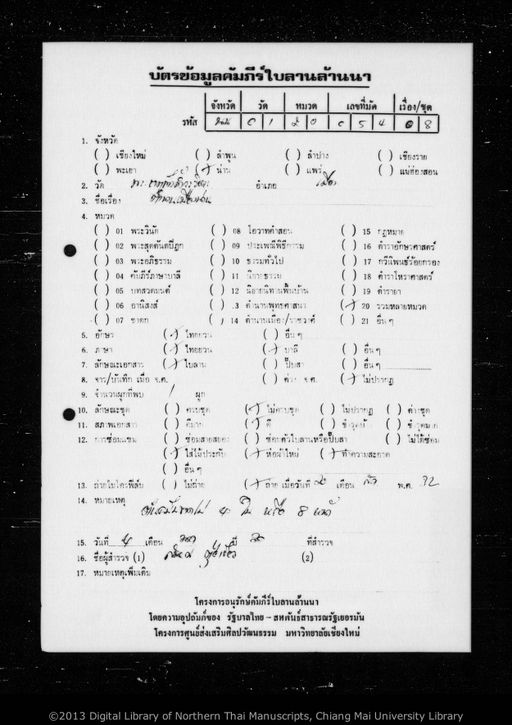 บัตรข้อมูลคัมภีร์ใบลานล้านนา
จังหวัด วัด หมวด เลขที่มัด เรื่อง/ชุด
รหัส 0 1 2 0 0 5 4 0 8
1. จังหวัด
( ) เชียงใหม่ ( ) ลำพูน ( ) ลำปาง ( ) เชียงราย
( ) พะเยา (/) น่าน ( ) แพร่ ( ) แม่ฮ่องสอน
2. วัด อำเภอ เมือง
3. ชื่อเรื่อง
4. หมวด
( ) 01 พระวินัย ( ) 08 โอวาทคำสอน ( ) 15 กฎหมาย
( ) 02 พระสุตตันตปิฎก ( ) 09 ประเพณีพิธีกรรม ( ) 16 ตำราอักษรศาสตร์
( ) 03 พระอภิธรรม ( ) 10 ธรรมทั่วไป ( ) 17 กวีนิพนธ์ร้อยกรอง
( ) 04 คัมภีร์ภาษาบาลี ( ) 11 นิยายธรรม ( ) 18 ตำราโหราศาสตร์
( ) 05 บทสวดมนต์ ( ) 12 นิยายนิทานพื้นบ้าน ( ) 19 ตำรายา
( ) 06 อานิสงส์ ( ) 13 ตำนานพุทธศาสนา (/) 20 รวมหลายหมวด
( ) 07 ชาดก ( ) 14 ตำนานเมือง/ราชวงศ์ ( ) 21 อื่นๆ
5. อักษร (/) ไทยยวน ( ) อื่นๆ
6. ภาษา (/) ไทยยวน (/) บาลี ( ) อื่นๆ
7. ลักษณะเอกสาร (/) ใบลาน ( ) ปั๊บสา ( ) อื่นๆ
8. จาร/บันทึก เมื่อ จ.ศ. ( ) ค่าง จ.ศ. (/) ไม่ปรากฏ
9. จำนวนผูกที่พบ 1 ผูก
10. ลักษณะชุด ( ) ครบชุด (/) ไม่ครบชุด ( ) ไม่ปรากฏ ( ) ค่างชุด
11. สภาพเอกสาร ( ) ดีมาก (/) ดี ( ) ชำรุด ( ) ชำรุดมาก
12. การซ่อมแซม ( ) ซ่อมสายสยอง ( ) ซ่อมตัวใบลานหรือปั๊บสา ( ) ไม่ได้ซ่อม
(/) ใส่ไม้ประกับ (/) ห่อผ้าใหม่ (/) ทำความสะอาด
( ) อื่นๆ
13. ถ่ายไมโครฟิล์ม ( ) ไม่ถ่าย (/) ถ่าย เมื่อวันที่ เดือน พ.ศ. 32
14. หมายเหตุ
4 ใบ หรือ 8 หน้า
15. วันที่ 4 เดือน ปี ที่สำรวจ
16. ชื่อผู้สำรวจ (1) (2)
17. หมายเหตุเพิ่มเติม
โครงการอนุรักษ์คัมภีร์ใบลานล้านนา
โดยความอุปถัมภ์ของ รัฐบาลไทย - สหพันธ์สาธารณรัฐเยอรมัน
โครงการศูนย์ส่งเสริมศิลปวัฒนธรรม มหาวิทยาลัยเชียงใหม่
©2013 Digital Library of Northern Thai Manuscripts, Chiang Mai University Library